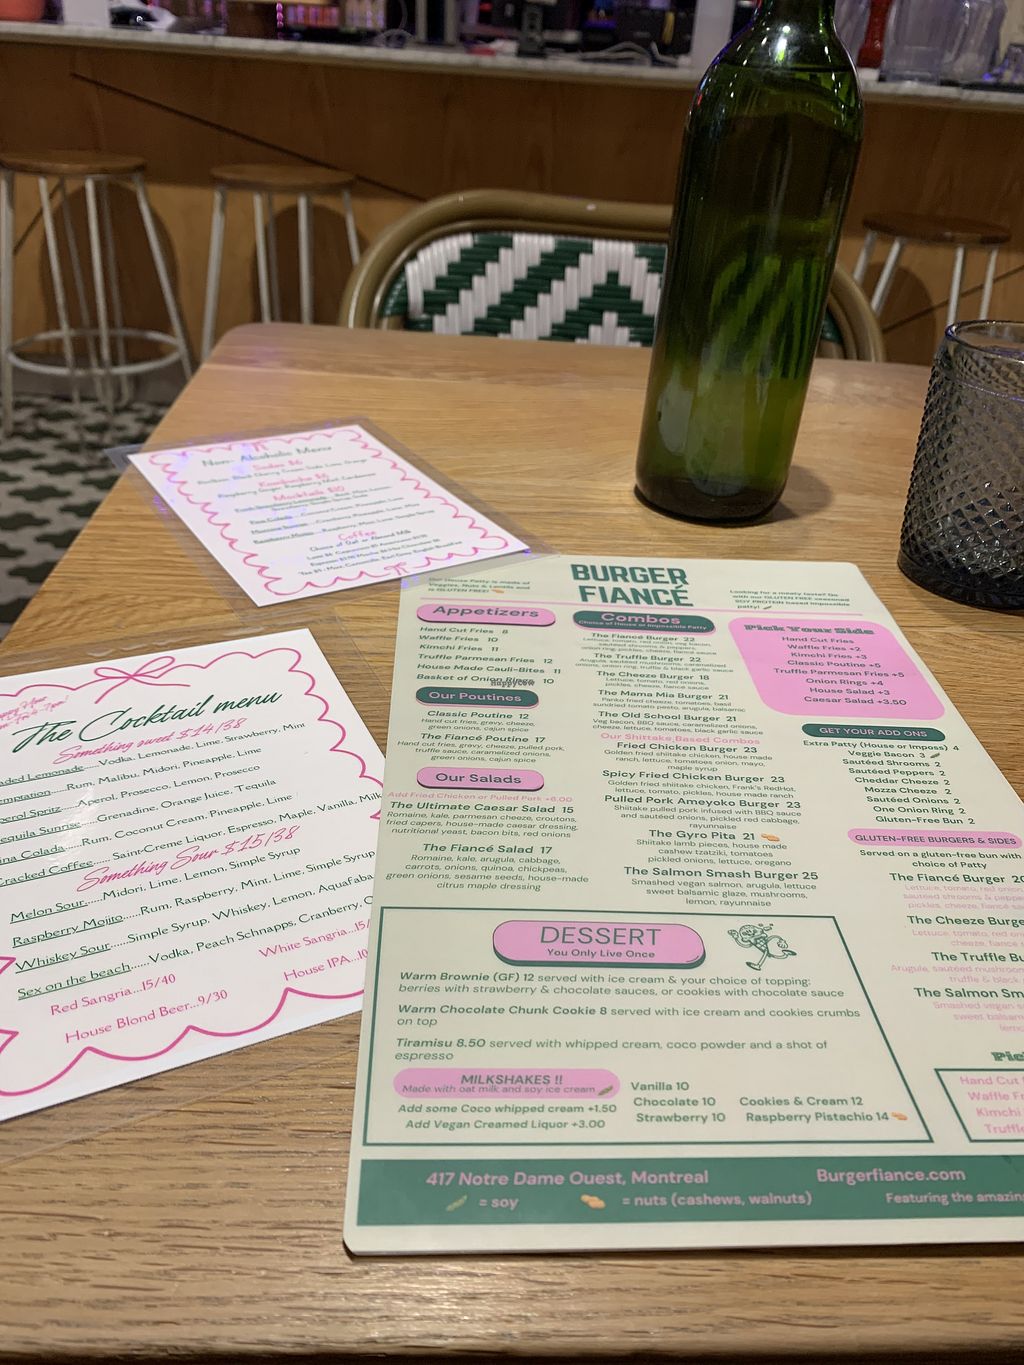 Non-Alcoholic Menu
Sodas $6
Kombucha $6
Mocktails $10
Coffee
Choice of Oat or Almond Milk
The Cocktail menu
Something sweet $14/38
Lemonade.....Vodka, Lemonade, Lime, Strawberry, Mint
Rum, Malibu, Midori, Pineapple, Lime
Spritz.....Aperol, Prosecco, Lemon, Prosecco
Sunrise.....Grenadine, Orange Juice, Tequila
Colada.....Rum, Coconut Cream, Pineapple, Lime
Cracked Coffee.....Saint-Creme Liquor, Espresso, Maple, Vanilla, Milk
Something Sour $15/38
Melon Sour.....Midori, Lime, Lemon, Simple Syrup
Raspberry Mojito.....Rum, Raspberry, Mint, Lime, Simple Syrup
Whiskey Sour.....Simple Syrup, Whiskey, Lemon, Aquafaba
Sex on the beach.....Vodka, Peach Schnapps, Cranberry,
Red Sangria...15/40
White Sangria...15/
House Blond Beer...9/30
House IPA...10
Our House Patty is made of
Veggies, Nuts & Lentils and
is GLUTEN FREE!
BURGER
FIANCÉ
Looking for a meaty taste? Go
with our GLUTEN FREE seasoned
SOY PROTEIN based impossible
patty!
Appetizers
Hand Cut Fries 8
Waffle Fries 10
Kimchi Fries 11
Truffle Parmesan Fries 12
House Made Cauli-Bites 11
Basket of Onion Rings 10
HappyCow
Our Poutines
Classic Poutine 12
Hand cut fries, gravy, cheeze,
green onions, cajun spice
The Fiancé Poutine 17
Hand cut fries, gravy, cheeze, pulled pork,
truffle sauce, caramelized onions,
green onions, cajun spice
Our Salads
Add Fried Chicken or Pulled Pork +6.00
The Ultimate Caesar Salad 15
Romaine, kale, parmesan cheeze, croutons,
fried capers, house-made caesar dressing,
nutritional yeast, bacon bits, red onions
The Fiancé Salad 17
Romaine, kale, arugula, cabbage,
carrots, onions, quinoa, chickpeas,
green onions, sesame seeds, house-made
citrus maple dressing
Combos
Choice of House or Impossible Patty
The Fiancé Burger 22
Lettuce, tomato, red onion, veg bacon,
sautéed shrooms & peppers,
onion ring, pickles, cheeze, fiancé sauce
The Truffle Burger 22
Arugula, sautéed mushrooms, caramelized
onions, onion ring, truffle & black garlic sauce
The Cheeze Burger 18
Lettuce, tomato, red onions,
pickles, cheeze, fiancé sauce
The Mama Mia Burger 21
Panko fried cheeze, tomatoes, basil
sundried tomato pesto, arugula, balsamic
The Old School Burger 21
Veg bacon, BBQ sauce, caramelized onions,
cheeze, lettuce, tomatoes, black garlic sauce
Our Shiitake Based Combos
Fried Chicken Burger 23
Golden fried shiitake chicken, house made
ranch, lettuce, tomatoes onion, mayo,
maple syrup
Spicy Fried Chicken Burger 23
Golden fried shiitake chicken, Frank's RedHot,
lettuce, tomato, pickles, house made ranch
Pulled Pork Ameyoko Burger 23
Shiitake pulled pork infused with BBQ sauce
and sautéed onions, pickled red cabbage,
rayunnaise
The Gyro Pita 21
Shiitake lamb pieces, house made
cashew tzatziki, tomatoes
pickled onions, lettuce, oregano
The Salmon Smash Burger 25
Smashed vegan salmon, arugula, lettuce
sweet balsamic glaze, mushrooms,
lemon, rayunnaise
Pick Your Side
Hand Cut Fries
Waffle Fries +2
Kimchi Fries +3
Classic Poutine +5
Truffle Parmesan Fries +5
Onion Rings +4
House Salad +3
Caesar Salad +3.50
GET YOUR ADD ONS
Extra Patty (House or Imposs) 4
Veggie Bacon 3
Sautéed Shrooms 2
Sautéed Peppers 2
Cheddar Cheeze 2
Mozza Cheeze 2
Sautéed Onions 2
One Onion Ring 2
Gluten-Free Bun 2
GLUTEN-FREE BURGERS & SIDES
Served on a gluten-free bun with
choice of Patty
The Fiancé Burger 20
Lettuce, tomato, red onion
sautéed shrooms & pepper
pickles, cheeze, fiancé sa
The Cheeze Burge
Lettuce, tomato, red on
cheeze, fiancé
The Truffle Bu
Arugula, sautéed mushroom
truffle & black
The Salmon Sm
Smashed vegan s
sweet balsam
Hand Cut
Waffle Fr
Kimchi
Truffl
DESSERT
You Only Live Once
Warm Brownie (GF) 12 served with ice cream & your choice of topping:
berries with strawberry & chocolate sauces, or cookies with chocolate sauce
Warm Chocolate Chunk Cookie 8 served with ice cream and cookies crumbs
on top
Tiramisu 8.50 served with whipped cream, coco powder and a shot of
espresso
MILKSHAKES !!
Made with oat milk and soy ice cream
Add some Coco whipped cream +1.50
Add Vegan Creamed Liquor +3.00
Vanilla 10
Chocolate 10
Strawberry 10
Cookies & Cream 12
Raspberry Pistachio 14
417 Notre Dame Ouest, Montreal
Burgerfiance.com
= soy
= nuts (cashews, walnuts)
Featuring the amazin